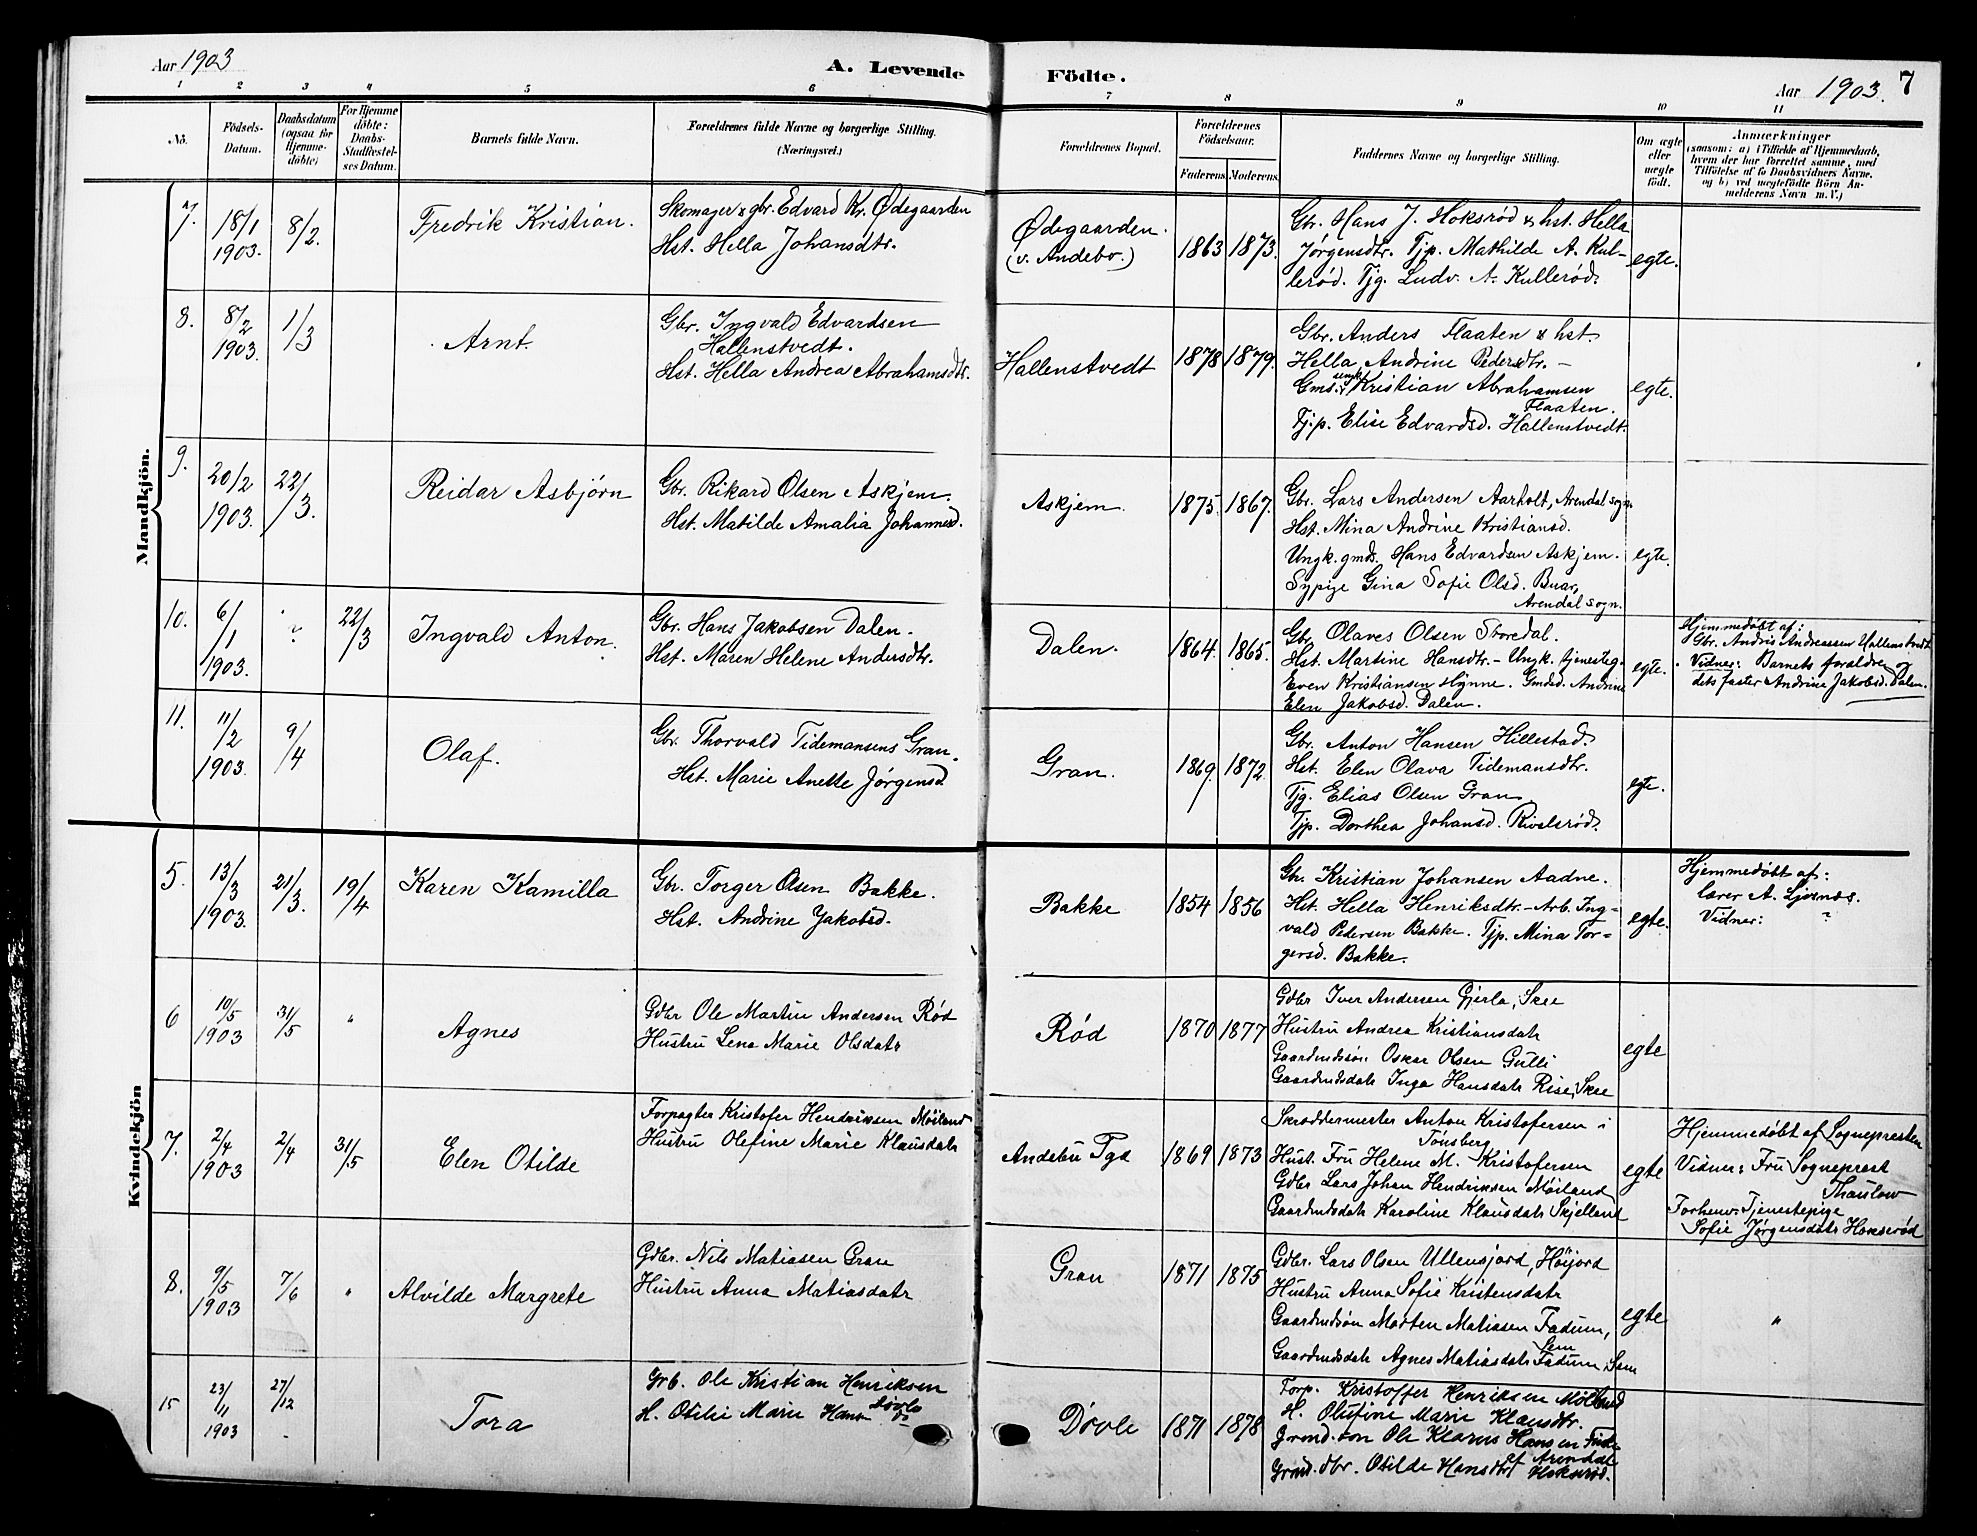 Aar 1903
A. Levende Födte.
Aar 1903. 7
1 2 3 4 5 6 7 8 9 10 11
No.
Födsels-Datum.
Daabsdatum (ogsaa for Hjemme-döbte)
For Hjemme döbte: Daabs-Stadfæstel-ses Datum.
Barnets fulde Navn.
Forældrenes fulde Navne og borgerlige Stilling. (Næringsvei.)
Forældrenes Bopæl.
Forældrenes Födselsaar.
Faderens. Moderens.
Faddernes Navne og borgerlige Stilling.
Om ægte eller uægte födt.
Anmærkninger (saasom: a) i Tilfælde af Hjemmedaab, hvem der har forrettet samme, med Tilföielse af to Daabsvidners Navne, og b) ved uægtefödte Börn An-melderens Navn m. V.)
Mandkjön.
7. 18/1 1903. 8/2. Fredrik Kristian.
Skomager & gbr. Edvard Kr. Ødegaarden
Hst. Hella Johansdtr.
Ødegaarden. (v. Andebo.) 1863 1873.
Gbr. Hans J. Hoksrød & hst. Hella
Jørgensdtr. Tjp. Mathilde A. Kul-
lerød. Tjg. Ludv. A. Kullerød.
egte.
8. 8/2 1903. 1/3 Arnt.
Gbr. Ingvald Edvardsen
Hallenstvedt.
Hst. Hella Andrea Abrahamsdtr.
Hallenstvedt 1878 1879.
Gbr. Anders Flaaten & hst.
Hella Andrine Pedersdtr. –
Gms. Kristian Abrahamsen
Flaaten.
Tj.p. Elise Edvardsd. Hallenstvedt.
egte.
9. 20/2 1903. 22/3. Reidar Asbjørn
Gbr. Rikard Olsen Askjem.
Hst. Matilde Amalia Johannesd.
Askjem. 1875. 1867.
Gbr. Lars Andersen Aarholt, Arendal sogn.
Hst. Mina Andrine Kristiansd.
Ungk. gmds. Hans Edvardsen Askjem.
Sypige Gina Sofie Olsd. Buar,
Arendal sogn.
egte.
10. 6/1 1903. ? 22/3 Ingvald Anton.
Gbr. Hans Jakobsen Dalen.
Hst. Maren Helene Andersdtr.
Dalen. 1864. 1865.
Gbr. Olaves Olsen Storedal.
Hst. Martine Hansdtr. – Ungk. tjenesteg.
Even Kristiansen Hynne. Gmdsd. Andrine
Elen Jakobsd. Dalen.
egte.
Hjemmedøbt af:
Gbr. Andris Andreassen Hallenstvedt
Vidner: Barnets forældre og
dets faster Andrine Jakobsd. Dalen.
11. 11/2 1903. 9/4 Olaf.
Gbr. Thorvald Tidemansens Gran.
Hst. Marie Anette Jørgensd
Gran. 1869. 1872.
Gbr. Anton Hansen Hillestad.
Hst. Elen Olava Tidemansdtr.
Tjg. Elias Olsen Gran
Tjp. Dorthea Johansd. Rivelsrød.
egte.
Kvindekjön
5. 13/3 1903. 21/3. 19/4 Karen Kamilla
Gbr. Torger Olsen Bakke.
Hst. Andrine Jakobsd.
Bakke 1854 1856
Gbr. Kristian Johansen Aadne.
Hst. Hella Henriksdtr. – Arb. Ing-
vald Pedersen Bakke. Tjp. Mina Tor=
gersd. Bakke.
egte.
Hjemmedøbt af:
lærer A. Ljøsnes.
Vidner: ?
6 10/5 1903 31/5 " Agnes
Gdbr Ole Martin Andersen Rød
Hustru Lena Marie Olsdatr
Rød 1870 1877
Gdbr Iver Andersen Gjerla, Skee
Hustru Andrea Kristiansdatr
Gaardmdssön Oskar Olsen Gulli
Gaardmdsdatr Inga Hansdatr Rise, Skee
egte
7. 2/4 1903 2/4 31/5 Elen Otilde
Forpagter Kristofer Hendriksen Möiland
Hustru Olefine Marie Klausdatr
Andebu Pgd 1869 1873
Skræddermester Anton Kristofersen i
Tönsberg
Hust. Fru Helene M. Kristofersen
Gdbr Lars Johan Hendriksen Möiland
Gaardmdsdatr Karoline Klausdatr Skjelland
egte
Hjemmedøbt af Sognepresten
Vidner: Fru Sogneprest
Thaulow
Forhenv. Tjenestepige
Sofie Jørgensdatr Hoksrød
8. 9/5 1903 7/6 " Alvilde Margrete
Gdbr. Nils Matiasen Gran
Hustru Anna Matiasdatr
Gran 1871 1875
Gdbr. Lars Olsen Ullensjord, Höijord
Hustru Anna Sofie Kristensdatr
Gaardmdsön Morten Matiasen Fadum,
Sem
Gaardmdsdatr Agnes Matiasdatr Fadum, Sem
egte
"
15 23/11 1903 27/12 Tora
Grb. Ole Kristian Henriksen
Døvle
H. Otilie Marie Hans
Døvle 1871 1878
Forp. Kristoffer Henriksen Mölland
H. Olufine Marie Klausdtr.
Grmd. søn Ole Klarius Hansen
af Arendal
Grmd. dtr. Otilde Hansdtr Hoksrød.